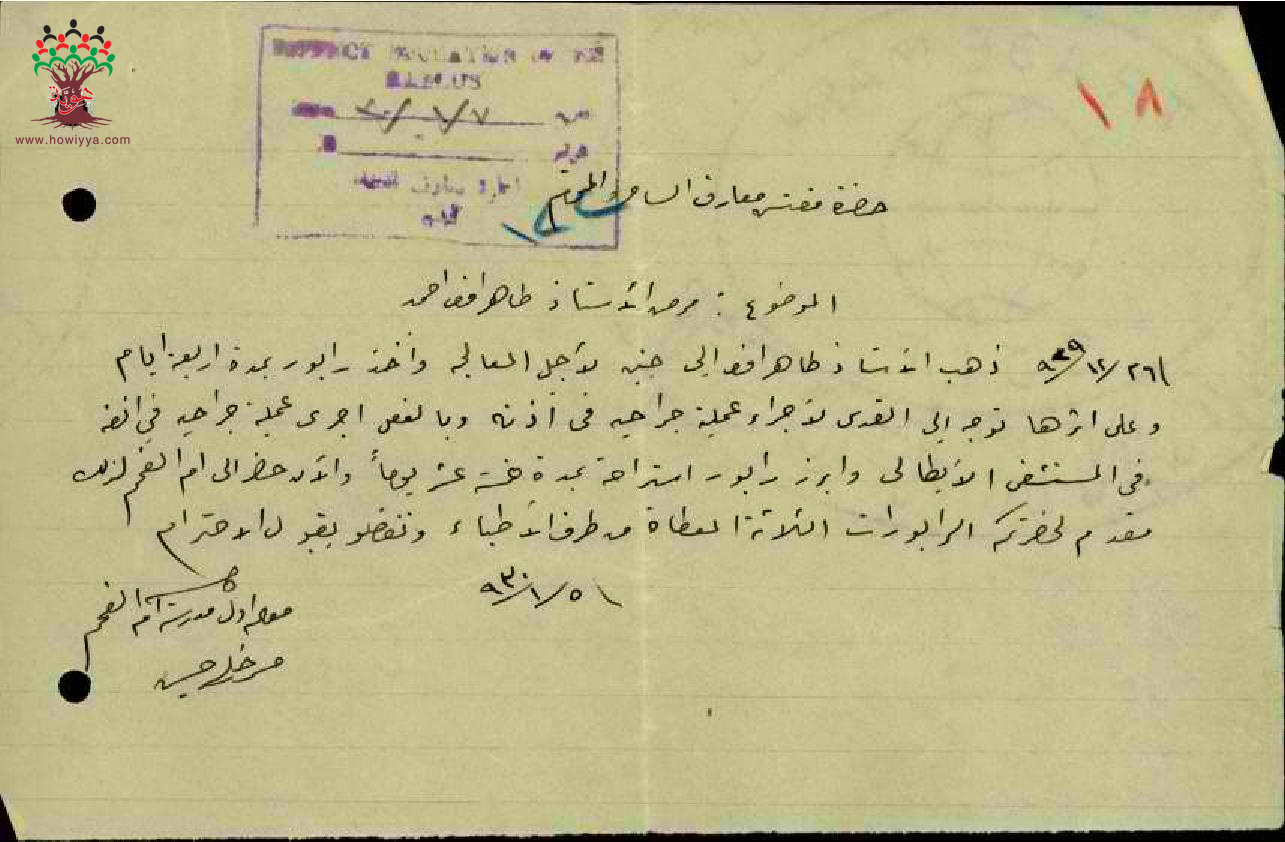 www.howiyya.com
١٨
DISTRICT EDUCATION OFFICE
NABLUS
حضرة مفتش معارف السامرة المحترم
الموضوع : مرض الأستاذ طاهر افندي احمد
٢٦/١٢/٩٢٩ ذهب الأستاذ طاهر افندي الى جنين لأجل المعالجة وأخذ رابور بمدة اربعة ايام
وعلى اثرها توجه إلى القدس لأجراء عملية جراحية في أذنه وبالفعل اجرى عملية جراحية في انفه
في المستشفى الأيطالي وابرز رابور استراحة بمدة خمسة عشر يوماً والآن حضر الى ام الفحم لذلك
مقدم لحضرتكم الرابورات الثلاثة المعطاة من طرف الأطباء وتفضلو بقبول الاحترام
٥/١/٩٣٠
معلم اول مدرسة ام الفحم